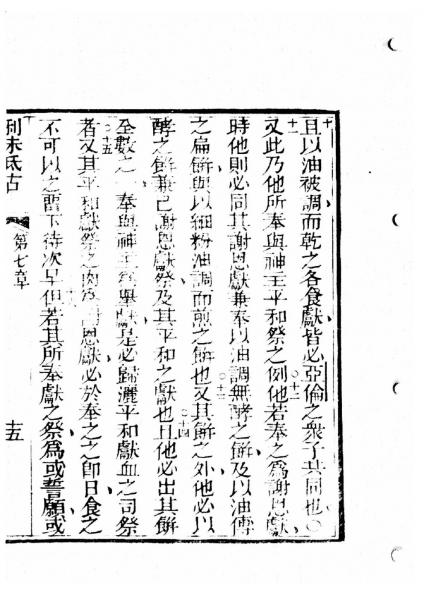 且以油被調而乾之各食獻皆必亞倫之衆子共同也○
十一
又此乃他所奉與神主平和祭之例他若奉之爲謝恩獻
十二
時他則必同其謝恩獻兼奉以油調無酵之餅及以油傅
之扁餅與以細粉油調而煎之餅也又其餅之外他必以
十三
酵之餅兼己謝恩獻祭及其平和之獻也且他必出其餅
十四
全數之一奉與神主爲舉獻是必歸灑平和獻血之司祭
者又其平和獻祭之肉爲謝恩獻必於奉之之即日食之
十五
不可以之留下待次早但若其所奉獻之祭爲或誓願或
十六
利未氏古
第七章
十五